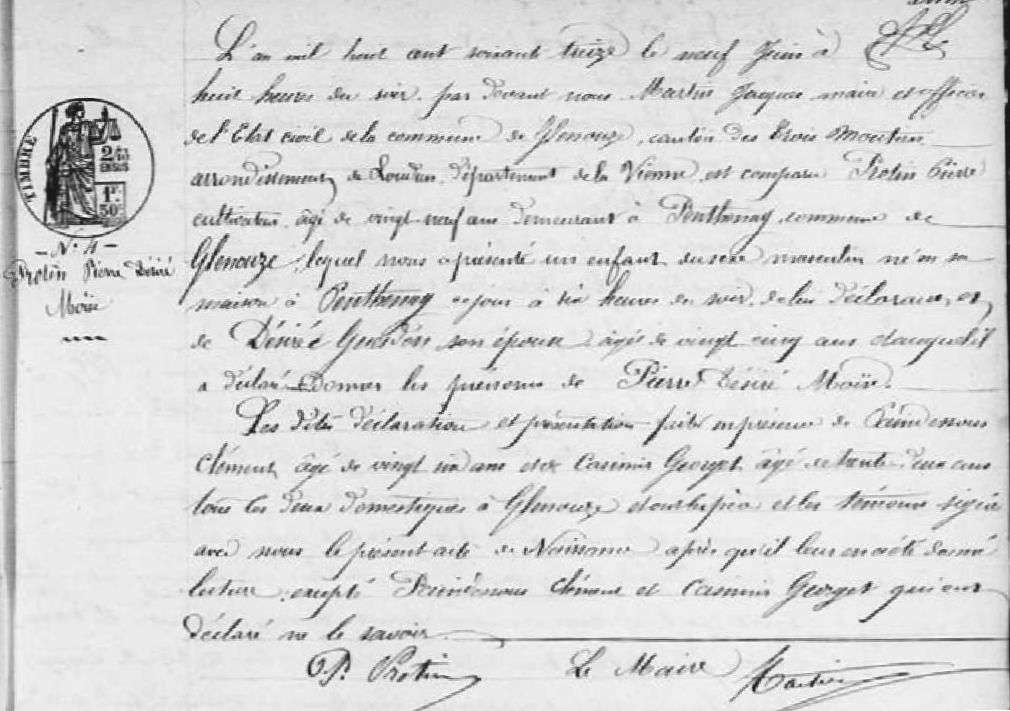 L'an mil huit cent soixante treize le neuf Juin à
huit heures du soir, par devant nous Martin Jacques maire et officier
de l'Etat civil de la commune de Glenouze, canton des Trois Moutiers
arrondissement de Loudun, département de la Vienne, est comparu Protin Pierre
cultivateur, âgé de vingt neuf ans demeurant à Ponthenay commune de
Glenouze, lequel nous a présenté un enfant du sexe masculin né en sa
maison à Ponthenay ce jour à six heures du soir, de lui déclarant, et
de Désiré son épouse âgée de vingt cinq ans et auquel il
a déclaré donner les prénoms de Pierre Désiré Moïse.
Les dites déclaration et présentation faites en présence de
Clément, âgé de vingt six ans et de Casimir Georget, âgé de trente deux ans
tous les deux domestiques à Glenouze et ont le père et les témoins signé
avec nous le présent acte de Naissance après qu'il leur en a été donné
lecture, excepté Clément et Casimir Georget qui ont
déclaré ne le savoir
P. Protin Le Maire Martin
TIMBRE
1F.
50c.
N° 4
Protin Pierre Désiré
Moïse